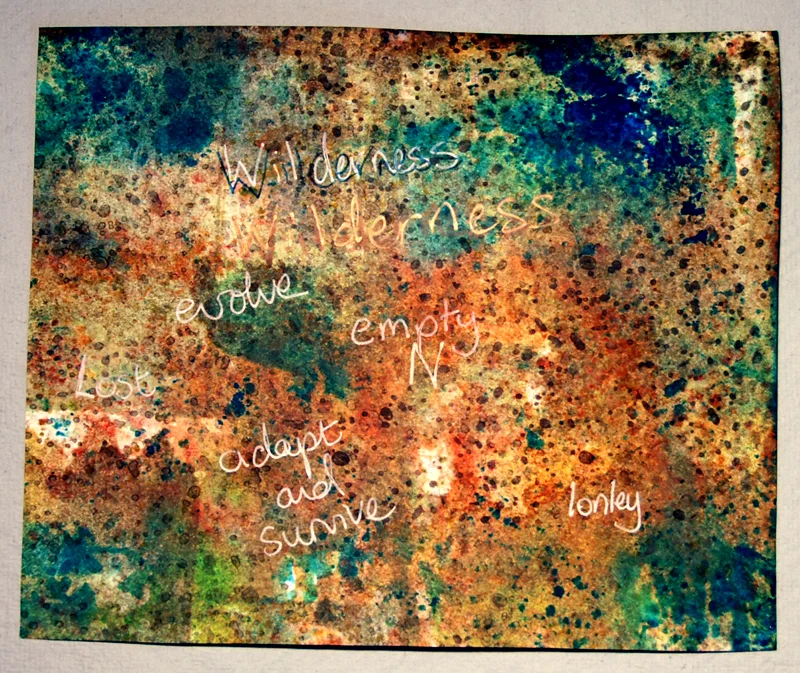 Wilderness
Wilderness
evolve
empty
N
Lost
adapt
and
survive
lonley